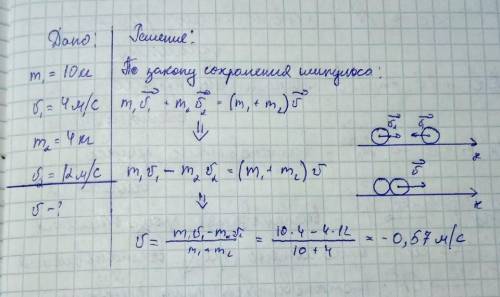 Дано:
m₁ = 10 кг
v₁ = 4 м/с
m₂ = 4 кг
v₂ = 12 м/с
v - ?
Решение:
По закону сохранения импульса:
m₁v⃗₁ + m₂v⃗₂ = (m₁ + m₂)v⃗
⇓
m₁v₁ − m₂v₂ = (m₁ + m₂)v
⇓
v = (m₁v₁ − m₂v₂)/(m₁ + m₂) = (10·4 − 4·12)/(10 + 4) = −0,57 м/с
x
v⃗
x